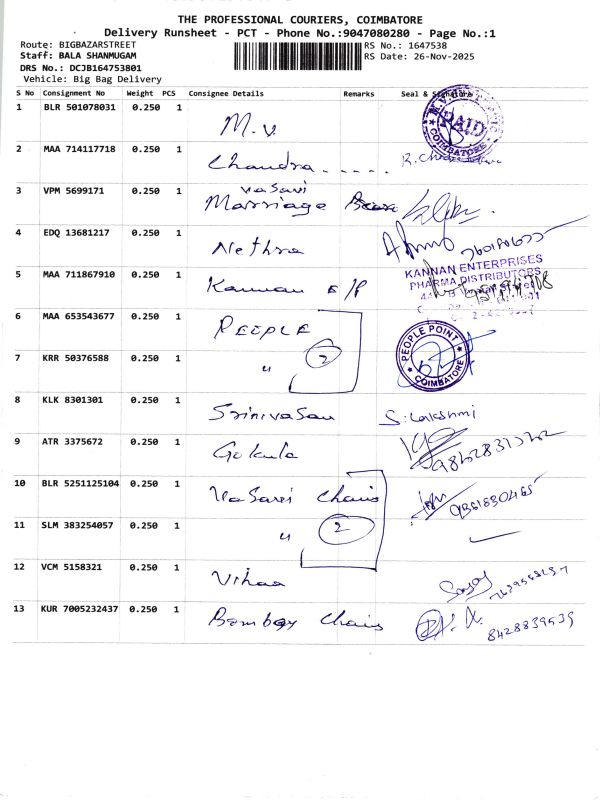 THE PROFESSIONAL COURIERS, COIMBATORE
Delivery Runsheet - PCT - Phone No.:9047080280 - Page No.:1
Route: BIGBAZARSTREET
RS No.: 1647538
Staff: BALA SHANMUGAM
RS Date: 26-Nov-2025
DRS No.: DCJB164753801
Vehicle: Big Bag Delivery
S No Consignment No Weight PCS Consignee Details Remarks Seal & Signature
1 BLR 501078031 0.250 1 M.V.
PAID
COIMBATORE
2 MAA 714117718 0.250 1 Chandra.....
3 VPM 5699171 0.250 1 Vasavi
Marriage
4 EDQ 13681217 0.250 1 Nethra
5 MAA 711867910 0.250 1 Kannan E/P
KANNAN ENTERPRISES
PHARMA DISTRIBUTORS
6 MAA 653543677 0.250 1 PEOPLE
PEOPLE POINT
COIMBATORE
7 KRR 50376588 0.250 1 " 2
8 KLK 8301301 0.250 1 Srinivasan S. Lakshmi
9 ATR 3375672 0.250 1 Gokula
10 BLR 5251125104 0.250 1 Vasavi Chais 9361830465
11 SLM 383254057 0.250 1 " 2
12 VCM 5158321 0.250 1 Vihaa
13 KUR 7005232437 0.250 1 Bombay Chais 8428839539